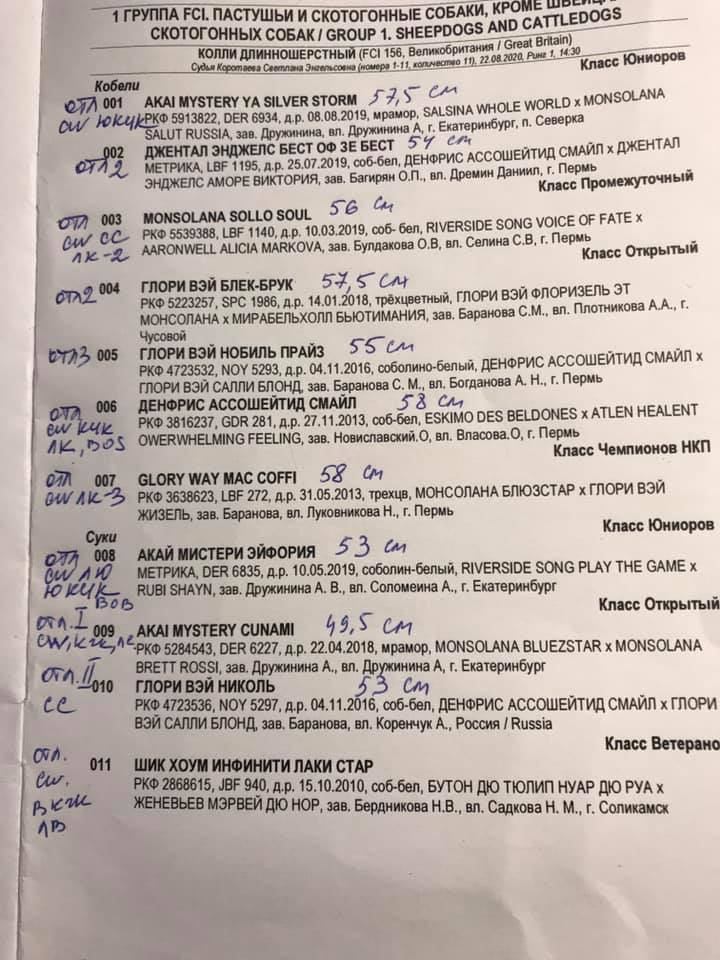 1 ГРУППА FCI. ПАСТУШЬИ И СКОТОГОННЫЕ СОБАКИ, КРОМЕ ШВЕЙЦА
СКОТОГОННЫХ СОБАК / GROUP 1. SHEEPDOGS AND CATTLEDOGS
КОЛЛИ ДЛИННОШЕРСТНЫЙ (FCI 156, Великобритания / Great Britain)
Судья Коротаева Светлана Энгельсовна (номера 1-11, количество 11), 22.08.2020, Ринг 1, 14:30
Класс Юниоров
Кобели
отл 001 AKAI MYSTERY YA SILVER STORM 57,5 см
CW ЮКЧК РКФ 5913822, DER 6934, д.р. 08.08.2019, мрамор, SALSINA WHOLE WORLD x MONSOLANA
SALUT RUSSIA, зав. Дружинина, вл. Дружинина А, г. Екатеринбург, п. Северка
002 ДЖЕНТАЛ ЭНДЖЕЛС БЕСТ ОФ ЗЕ БЕСТ 54 см
отл 2 МЕТРИКА, LBF 1195, д.р. 25.07.2019, соб-бел, ДЕНФРИС АССОШЕЙТИД СМАЙЛ x ДЖЕНТАЛ
ЭНДЖЕЛС АМОРЕ ВИКТОРИЯ, зав. Багирян О.П., вл. Дремин Даниил, г. Пермь
Класс Промежуточный
отл 003 MONSOLANA SOLLO SOUL 56 см
CW CC РКФ 5539388, LBF 1140, д.р. 10.03.2019, соб- бел, RIVERSIDE SONG VOICE OF FATE x
ЛК-2 AARONWELL ALICIA MARKOVA, зав. Булдакова О.В, вл. Селина С.В, г. Пермь
Класс Открытый
отл 2 004 ГЛОРИ ВЭЙ БЛЕК-БРУК 57,5 см
РКФ 5223257, SPC 1986, д.р. 14.01.2018, трёхцветный, ГЛОРИ ВЭЙ ФЛОРИЗЕЛЬ ЭТ
МОНСОЛАНА x МИРАБЕЛЬХОЛЛ БЬЮТИМАНИЯ, зав. Баранова С.М., вл. Плотникова А.А., г.
Чусовой
отл 3 005 ГЛОРИ ВЭЙ НОБИЛЬ ПРАЙЗ 55 см
РКФ 4723532, NOY 5293, д.р. 04.11.2016, соболино-белый, ДЕНФРИС АССОШЕЙТИД СМАЙЛ x
ГЛОРИ ВЭЙ САЛЛИ БЛОНД, зав. Баранова С. М., вл. Богданова А. Н., г. Пермь
отл 006 ДЕНФРИС АССОШЕЙТИД СМАЙЛ 58 см
CW КЧК РКФ 3816237, GDR 281, д.р. 27.11.2013, соб-бел, ESKIMO DES BELDONES x ATLEN HEALENT
ЛК, BOS OWERWHELMING FEELING, зав. Новиславский.О, вл. Власова.О, г. Пермь
Класс Чемпионов НКП
отл 007 GLORY WAY MAC COFFI 58 см
CW ЛК-3 РКФ 3638623, LBF 272, д.р. 31.05.2013, трехцв, МОНСОЛАНА БЛЮЗСТАР x ГЛОРИ ВЭЙ
ЖИЗЕЛЬ, зав. Баранова, вл. Луковникова Н., г. Пермь
Класс Юниоров
Суки
отл 008 АКАЙ МИСТЕРИ ЭЙФОРИЯ 53 см
CW ЛЮ МЕТРИКА, DER 6835, д.р. 10.05.2019, соболин-белый, RIVERSIDE SONG PLAY THE GAME x
ЮКЧК RUBI SHAYN, зав. Дружинина А. В., вл. Соломеина А., г. Екатеринбург
BOB
Класс Открытый
отл. I 009 AKAI MYSTERY CUNAMI 49,5 см
CW, КЧК, РКФ 5284543, DER 6227, д.р. 22.04.2018, мрамор, MONSOLANA BLUEZSTAR x MONSOLANA
BRETT ROSSI, зав. Дружинина А., вл. Дружинина А, г. Екатеринбург
отл. II 010 ГЛОРИ ВЭЙ НИКОЛЬ 53 см
CC РКФ 4723536, NOY 5297, д.р. 04.11.2016, соб-бел, ДЕНФРИС АССОШЕЙТИД СМАЙЛ x ГЛОРИ
ВЭЙ САЛЛИ БЛОНД, зав. Баранова, вл. Коренчук А., Россия / Russia
Класс Ветерано
отл. 011 ШИК ХОУМ ИНФИНИТИ ЛАКИ СТАР
CW. РКФ 2868615, JBF 940, д.р. 15.10.2010, соб-бел, БУТОН ДЮ ТЮЛИП НУАР ДЮ РУА x
ВКЧК ЖЕНЕВЬЕВ МЭРВЕЙ ДЮ НОР, зав. Бердникова Н.В., вл. Садкова Н. М., г. Соликамск
ЛВ